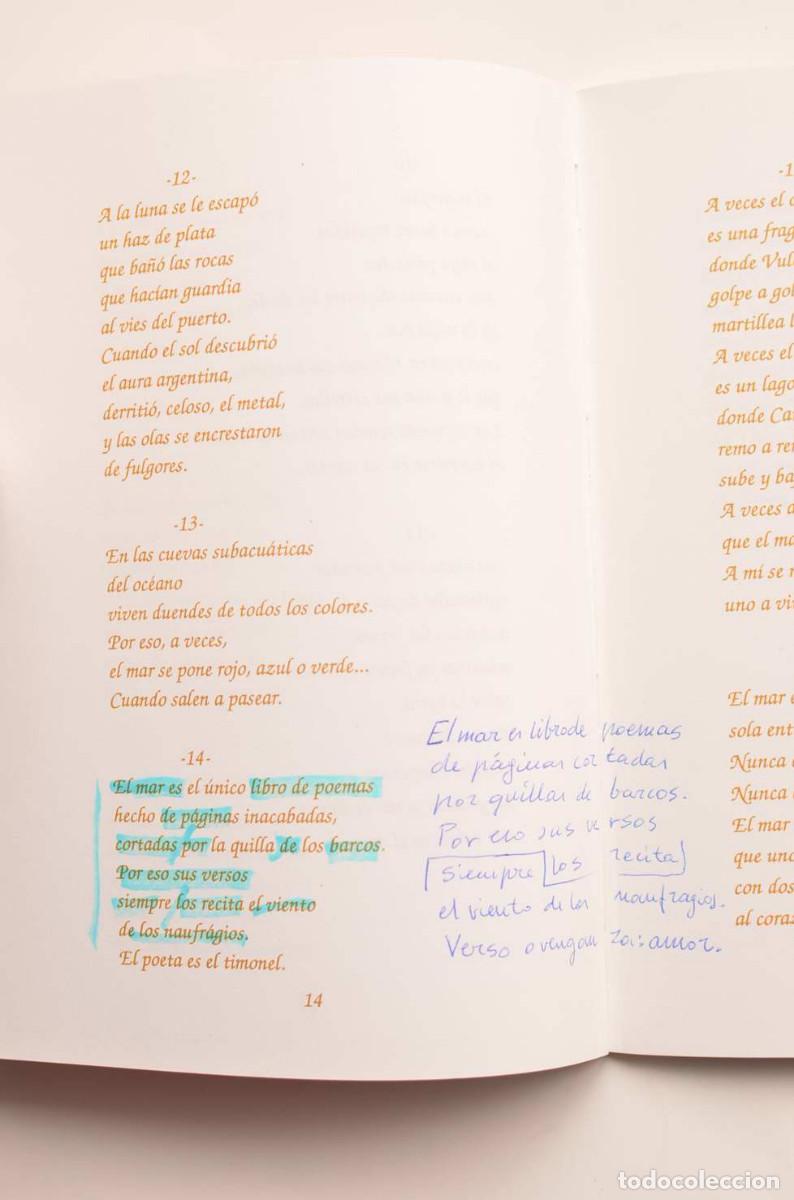 -12-
A la luna se le escapó
un haz de plata
que bañó las rocas
que hacían guardia
al vies del puerto.
Cuando el sol descubrió
el aura argentina,
derritió, celoso, el metal,
y las olas se encrestaron
de fulgores.
-13-
En las cuevas subacuáticas
del océano
viven duendes de todos los colores.
Por eso, a veces,
el mar se pone rojo, azul o verde...
Cuando salen a pasear.
-14-
El mar es el único libro de poemas
hecho de páginas inacabadas,
cortadas por la quilla de los barcos.
Por eso sus versos
siempre los recita el viento
de los naufrágios.
El poeta es el timonel.
14
El mar es libro de poemas
de páginas cortadas
por quillas de barcos.
Por eso sus versos
siempre los recita
el viento de los naufragios.
Verso o venganza: amor.
A veces el
es una
donde
golpe a
martillea
A veces el
es un lago
donde
remo a
sube y
A veces
que el
A mí se
uno a
El mar
sola
Nunca
Nunca
El mar
que
con dos
al
todocoleccion